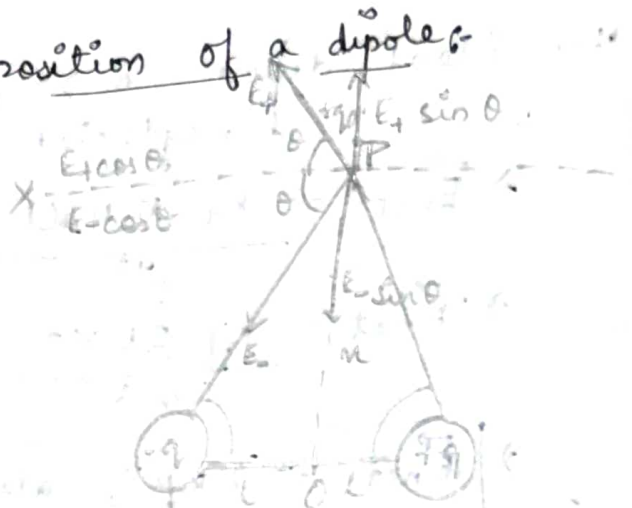 rosition of a dipole:-
E+
+q
E+ sin θ
θ
P
E+cos θ
X
E-cos θ
θ
E- sin θ
E-
x
-q
+q
l O l